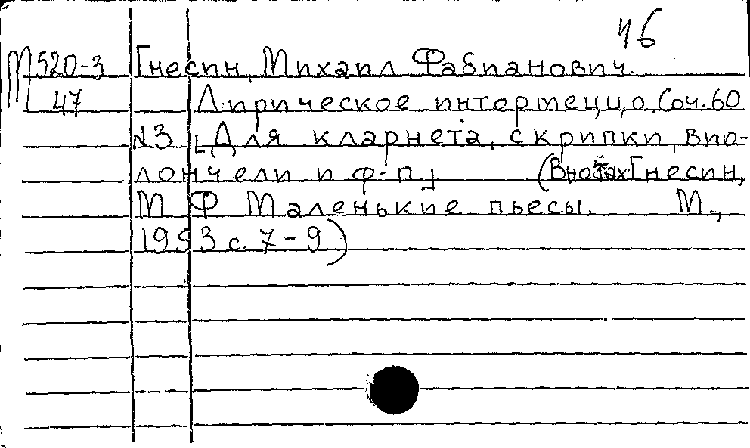 46
М 520-3 Гнесин, Михаил Фабианович.
47 Лирическое интермеццо. Соч. 60
N3 [Для кларнета, скрипки, вио-
лончели и ф-п.] (В нотах Гнесин,
М Ф Маленькие пьесы. М.,
1953 с. 7-9)